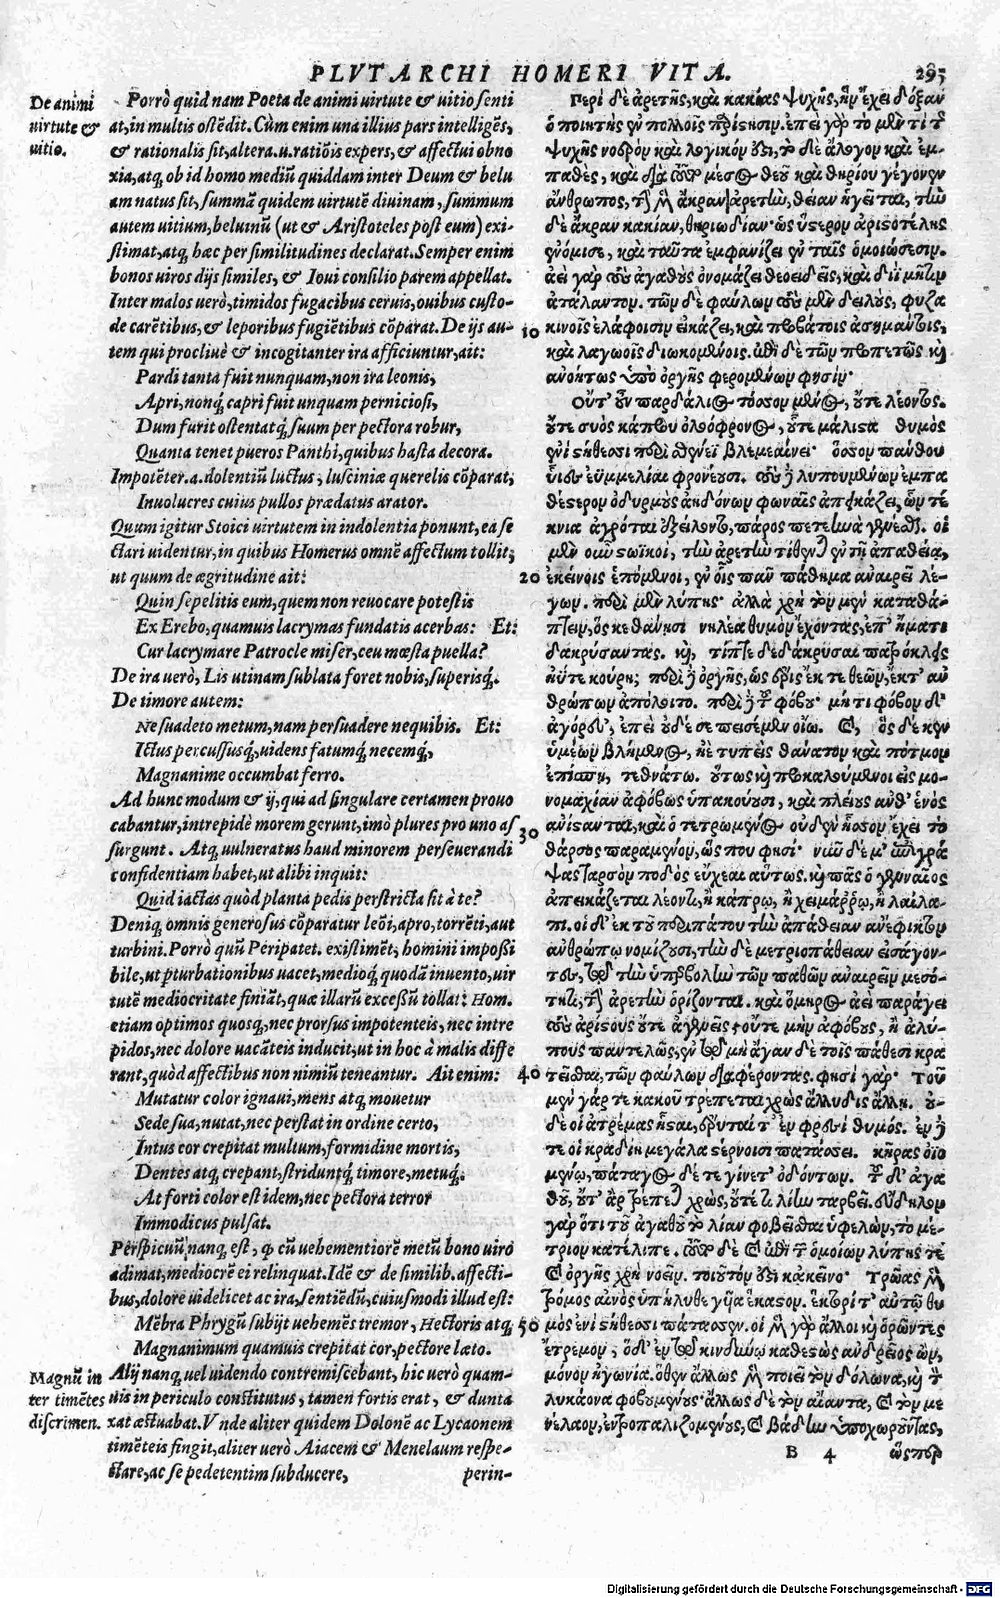 PLVTARCHI HOMERI VITA.
295
De animi
uirtute &
uitio.
Porrò quid nam Poeta de animi uirtute & uitio senti
at, in multis ostẽdit. Cùm enim una illius pars intelligẽs,
& rationalis sit, altera.u. ratiõis expers, & affectui obno
xia, atq; ob id homo mediũ quiddam inter Deum & belu
am natus sit, summã quidem uirtutẽ diuinam, summum
autem uitium, beluinũ (ut & Aristoteles post eum) exi-
stimat, atq; hæc per similitudines declarat. Semper enim
bonos uiros dijs similes, & Ioui consilio parem appellat.
Inter malos uerò, timidos fugacibus ceruis, ouibus custo-
de carẽtibus, & leporibus fugiẽtibus cõparat. De ijs au-
tem qui procliuè & incogitanter ira afficiuntur, ait:
Pardi tanta fuit nunquam, non ira leonis,
Apri, nonq; capri fuit unquam perniciosi,
Dum furit ostentatq; suum per pectora robur,
Quanta tenet pueros Panthi, quibus hasta decora.
Impotẽter.a.dolentiũ luctus, lusciniæ querelis cõparat;
Inuolucres cuius pullos prædatus arator.
Quum igitur Stoici uirtutem in indolentia ponunt, ea se
ctari uidentur, in quibus Homerus omnẽ affectum tollit;
ut quum de ægritudine ait:
Quin sepelitis eum, quem non reuocare potestis
Ex Erebo, quamuis lacrymas fundatis acerbas: Et:
Cur lacrymare Patrocle miser, ceu mœsta puella?
De ira uerò, Lis utinam sublata foret nobis, superisq;.
De timore autem:
Ne suadeto metum, nam persuadere nequibis. Et:
Ictus percussusq;, uidens fatumq; necemq;,
Magnanime occumbat ferro.
Ad hunc modum & ij, qui ad singulare certamen prouo
cabantur, intrepidè morem gerunt, imò plures pro uno as
surgunt. Atq; uulneratus haud minorem perseuerandi
confidentiam habet, ut alibi inquit:
Quid iactas quòd planta pedis perstricta sit à te?
Deniq; omnis generosus cõparatur leõi, apro, torrẽti, aut
turbini. Porrò quũ Peripatet. existimẽt, homini impossi
bile, ut pturbationibus uacet, medioq; quodã inuento, uir
tutẽ mediocritate finiãt, quæ illarũ excessũ tollat: Hom.
etiam optimos quosq;, nec prorsus impotenteis, nec intre
pidos, nec dolore uacãteis inducit, ut in hoc à malis diffe
rant, quòd affectibus non nimiũ teneantur. Ait enim:
Mutatur color ignaui, mens atq; mouetur
Sede sua, nutat, nec perstat in ordine certo,
Intus cor crepitat multum, formidine mortis,
Dentes atq; crepant, striduntq; timore, metuq;.
At forti color est idem, nec pectora terror
Immodicus pulsat.
Perspicuũ nanq; est, φ cũ uehementiorẽ metũ bono uiro
adimat, mediocrẽ ei relinquat. Idẽ & de similib. affecti-
bus, dolore uidelicet ac ira, sentiẽdũ, cuiusmodi illud est:
Mẽbra Phrygũ subijt uehemẽs tremor, Hectoris atq;
Magnanimum quamuis crepitat cor, pectore lato.
Magnũ in
ter timẽtes
discrimen.
Alij nanq; uel uidendo contremiscebant, hic uerò quam-
uis in periculo constitutus, tamen fortis erat, & dunta
xat æstuabat. Vnde aliter quidem Dolonẽ ac Lycaonem
timẽteis fingit, aliter uerò Aiacem & Menelaum respe-
ctare, ac se pedetentim subducere, perin-
10
20
30
40
50
Περὶ δὲ ἀρετῆς, καὶ κακίας ψυχῆς, ἣν ἔχει δόξαν
ὁ ποιητὴς ἐν πολλοῖς παρίστησιν. ἐπεὶ γὰρ τὸ μέν τι τῆς
ψυχῆς νοερὸν καὶ λογικόν ἐστι, τὸ δὲ ἄλογον καὶ ἐμ-
παθὲς, καὶ διὰ τοῦτο μέσος θεοῦ καὶ θηρίου γέγονεν
ἄνθρωπος, τὴν μὲν ἄκραν ἀρετὴν, θείαν ἡγεῖται, τὴν
δὲ ἄκραν κακίαν, θηριωδίαν· ὡς ὕστερον ἀριστοτέλης
ἐνόμισε, καὶ ταῦτα ἐμφανίζει ἐν ταῖς ὁμοιώσεσιν.
ἀεὶ γὰρ τοὺς ἀγαθοὺς ὀνομάζει θεοειδεῖς, καὶ διῒ μῆτιν
ἀτάλαντον. τῶν δὲ φαύλων τοὺς μὲν δειλοὺς, φυζα
κινοῖς ἐλάφοισιν εἰκάζει, καὶ προβάτοις ἀσημάντοις,
καὶ λαγωοῖς διωκομένοις. ἐπὶ δὲ τῶν προπετῶς καὶ
ἀνοήτως ὑπὸ ὀργῆς φερομένων φησίν·
Οὔτ' οὖν παρδάλιος τόσσον μένος, οὔτε λέοντος.
οὔτε συὸς κάπρου ὀλοόφρονος, οὗτε μάλιστα θυμὸς
ἐνὶ στήθεσσι περὶ σθένεϊ βλεμεαίνει· ὅσσον πάνθου
υἷες ἐϋμμελίαι φρονέουσι. τοὺς δὲ λυπουμένων ἐμπα
θέστερον ὀδυρμοὺς ἀηδόνων φωναῖς ἀπεικάζει, ὧν τέ
κνα ἀγρόται ἐξείλοντο, πάρος πετεηνὰ γενέσθαι. οἱ
μὲν οὖν στωϊκοὶ, τὴν ἀρετὴν τίθενται ἐν τῇ ἀπαθείᾳ,
ἐκείνοις ἑπόμενοι, ἐν οἷς πᾶν πάθημα ἀναιρεῖ λέ-
γων. περὶ μὲν λύπης· ἀλλὰ χρὴ τὸν μὲν καταθά-
πτειν, ὅς κε θάνῃσι νηλέα θυμὸν ἔχοντας, ἐπ' ἤματι
δακρύσαντας. καὶ, τίπτε δεδάκρυσαι πατρόκλεις
ἠΰτε κούρη; περὶ δὲ ὀργῆς, ὡς ἔρις ἔκ τε θεῶν, ἔκτ' ἀν
θρώπων ἀπόλοιτο. περὶ δὲ τοῦ φόβου· μή τι φόβον δ'
ἀγόρευ', ἐπεὶ οὐδέ σε πεισέμεν οἴω. καὶ, ὃς δέ κεν
ὑμέων βλήμενος, ἠὲ τυπεὶς θάνατον καὶ πότμον
ἐπίσπῃ, τεθνάτω. οὕτως καὶ προκαλούμενοι εἰς μο-
νομαχίαν ἀφόβως ὑπακούουσι, καὶ πλείους ἀνθ' ἑνὸς
ἀνίστανται, καὶ ὁ τετρωμένος οὐδὲν ἧσσον ἔχει τὸ
θάρσος παραμένον, ὥς που φησί· νῦν δέ μ' ἐπιγρά
ψας ταρσὸν ποδὸς εὔχεαι αὔτως. καὶ πᾶς ὁ γενναῖος
ἀπεικάζεται λέοντι, ἢ κάπρῳ, ἢ χειμάῤῥῳ, ἢ λαίλα-
πι. οἱ δ' ἐκ τοῦ περιπάτου τὴν ἀπάθειαν ἀνέφικτον
ἀνθρώπῳ νομίζουσι, τὴν δὲ μετριοπάθειαν εἰσάγον-
τες, τῷ τὴν ὑπερβολὴν τῶν παθῶν ἀναιρεῖν μεσό-
τητι, τὴν ἀρετὴν ὁρίζονται. καὶ ὅμηρος ἀεὶ παράγει
τοὺς ἀρίστους οὔτε ἀγεννεῖς, οὔτε μὴν ἀφόβους, ἢ ἀλύ-
πους παντελῶς, ἐν τῷ μὴ ἄγαν δὲ τοῖς πάθεσι κρα
τεῖσθαι, τῶν φαύλων διαφέροντας. φησὶ γάρ· Τοῦ
μὲν γάρ τε κακοῦ τρέπεται χρὼς ἄλλυδις ἄλλη. οὐ-
δέ οἱ ἀτρέμας ἧσται, ἐρητύεται ἐν φρεσὶ θυμός. ἐν δέ
τε οἱ κραδίη μεγάλα στέρνοισι πατάσσει. κῆρας ὀϊο
μένῳ, πάταγος δέ τε γίνετ' ὀδόντων. τοῦ δ' ἀγα
θοῦ, οὔτ' ἂρ τρέπεται χρὼς, οὔτέ τι λίην ταρβεῖ. εὔδηλον
γὰρ ὅτι τοῦ ἀγαθοῦ τὸ λίαν φοβεῖσθαι ὑφελὼν, τὸ μέ-
τριον κατέλιπε. τοῦτο δὲ καὶ ἐπὶ τῶν ὁμοίων λύπης τε
καὶ ὀργῆς χρὴ νοεῖν. τοιοῦτόν ἐστι κἀκεῖνο· Τρῶας μὲν
τρόμος αἰνὸς ὑπήλυθε γυῖα ἕκαστον. ἕκτορί τ' αὐτῷ θυ
μὸς ἐνὶ στήθεσσι πάτασσεν. οἱ μὲν γὰρ ἄλλοι καὶ ὁρῶντες
ἔτρεμον; ὁ δ' ἐν τῷ κινδύνῳ καθεστὼς ἀνδρεῖος ὢν,
μόνον ἠγωνία. ὅθεν ἄλλως μὲν ποιεῖ τὸν δόλωνα, καὶ τὸν
λυκάονα φοβουμένους· ἄλλως δὲ τὸν αἴαντα, καὶ τὸν με
νέλαον, ἐντροπαλιζομένους, καὶ βάδην ὑποχωροῦντας,
B 4 ὥσπερ
Digitalisierung gefördert durch die Deutsche Forschungsgemeinschaft - DFG